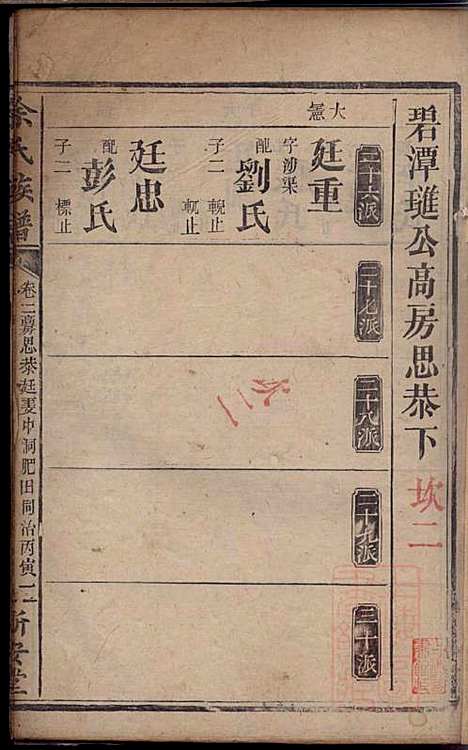 碧潭璀公高房思恭下
坎二
二十六派
二十七派
二十八派
二十九派
三十派
大憲
廷重
字沙渠
配劉氏
子二 輗止 軏止
廷忠
配彭氏
子二 標止
坎二
余氏族譜
卷二 思恭廷 中洞肥田同治丙寅 二
新安堂